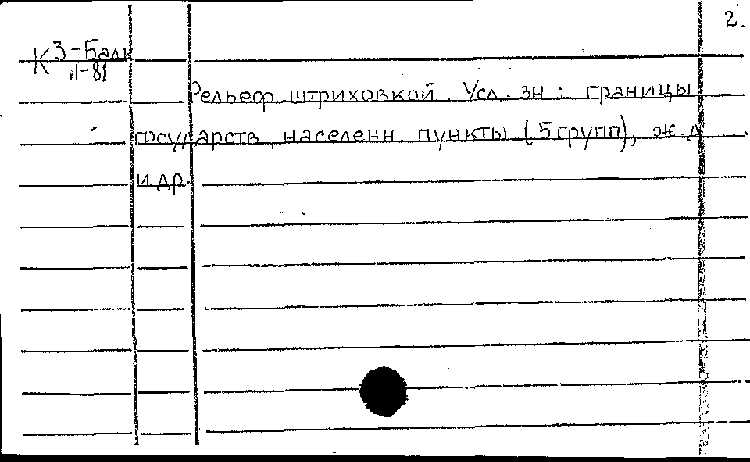 2.
К 3-Балк
II-81
Рельеф штриховкой. Усл. зн.: границы
государств, населенн. пункты (5 групп), ж.д.
и др.